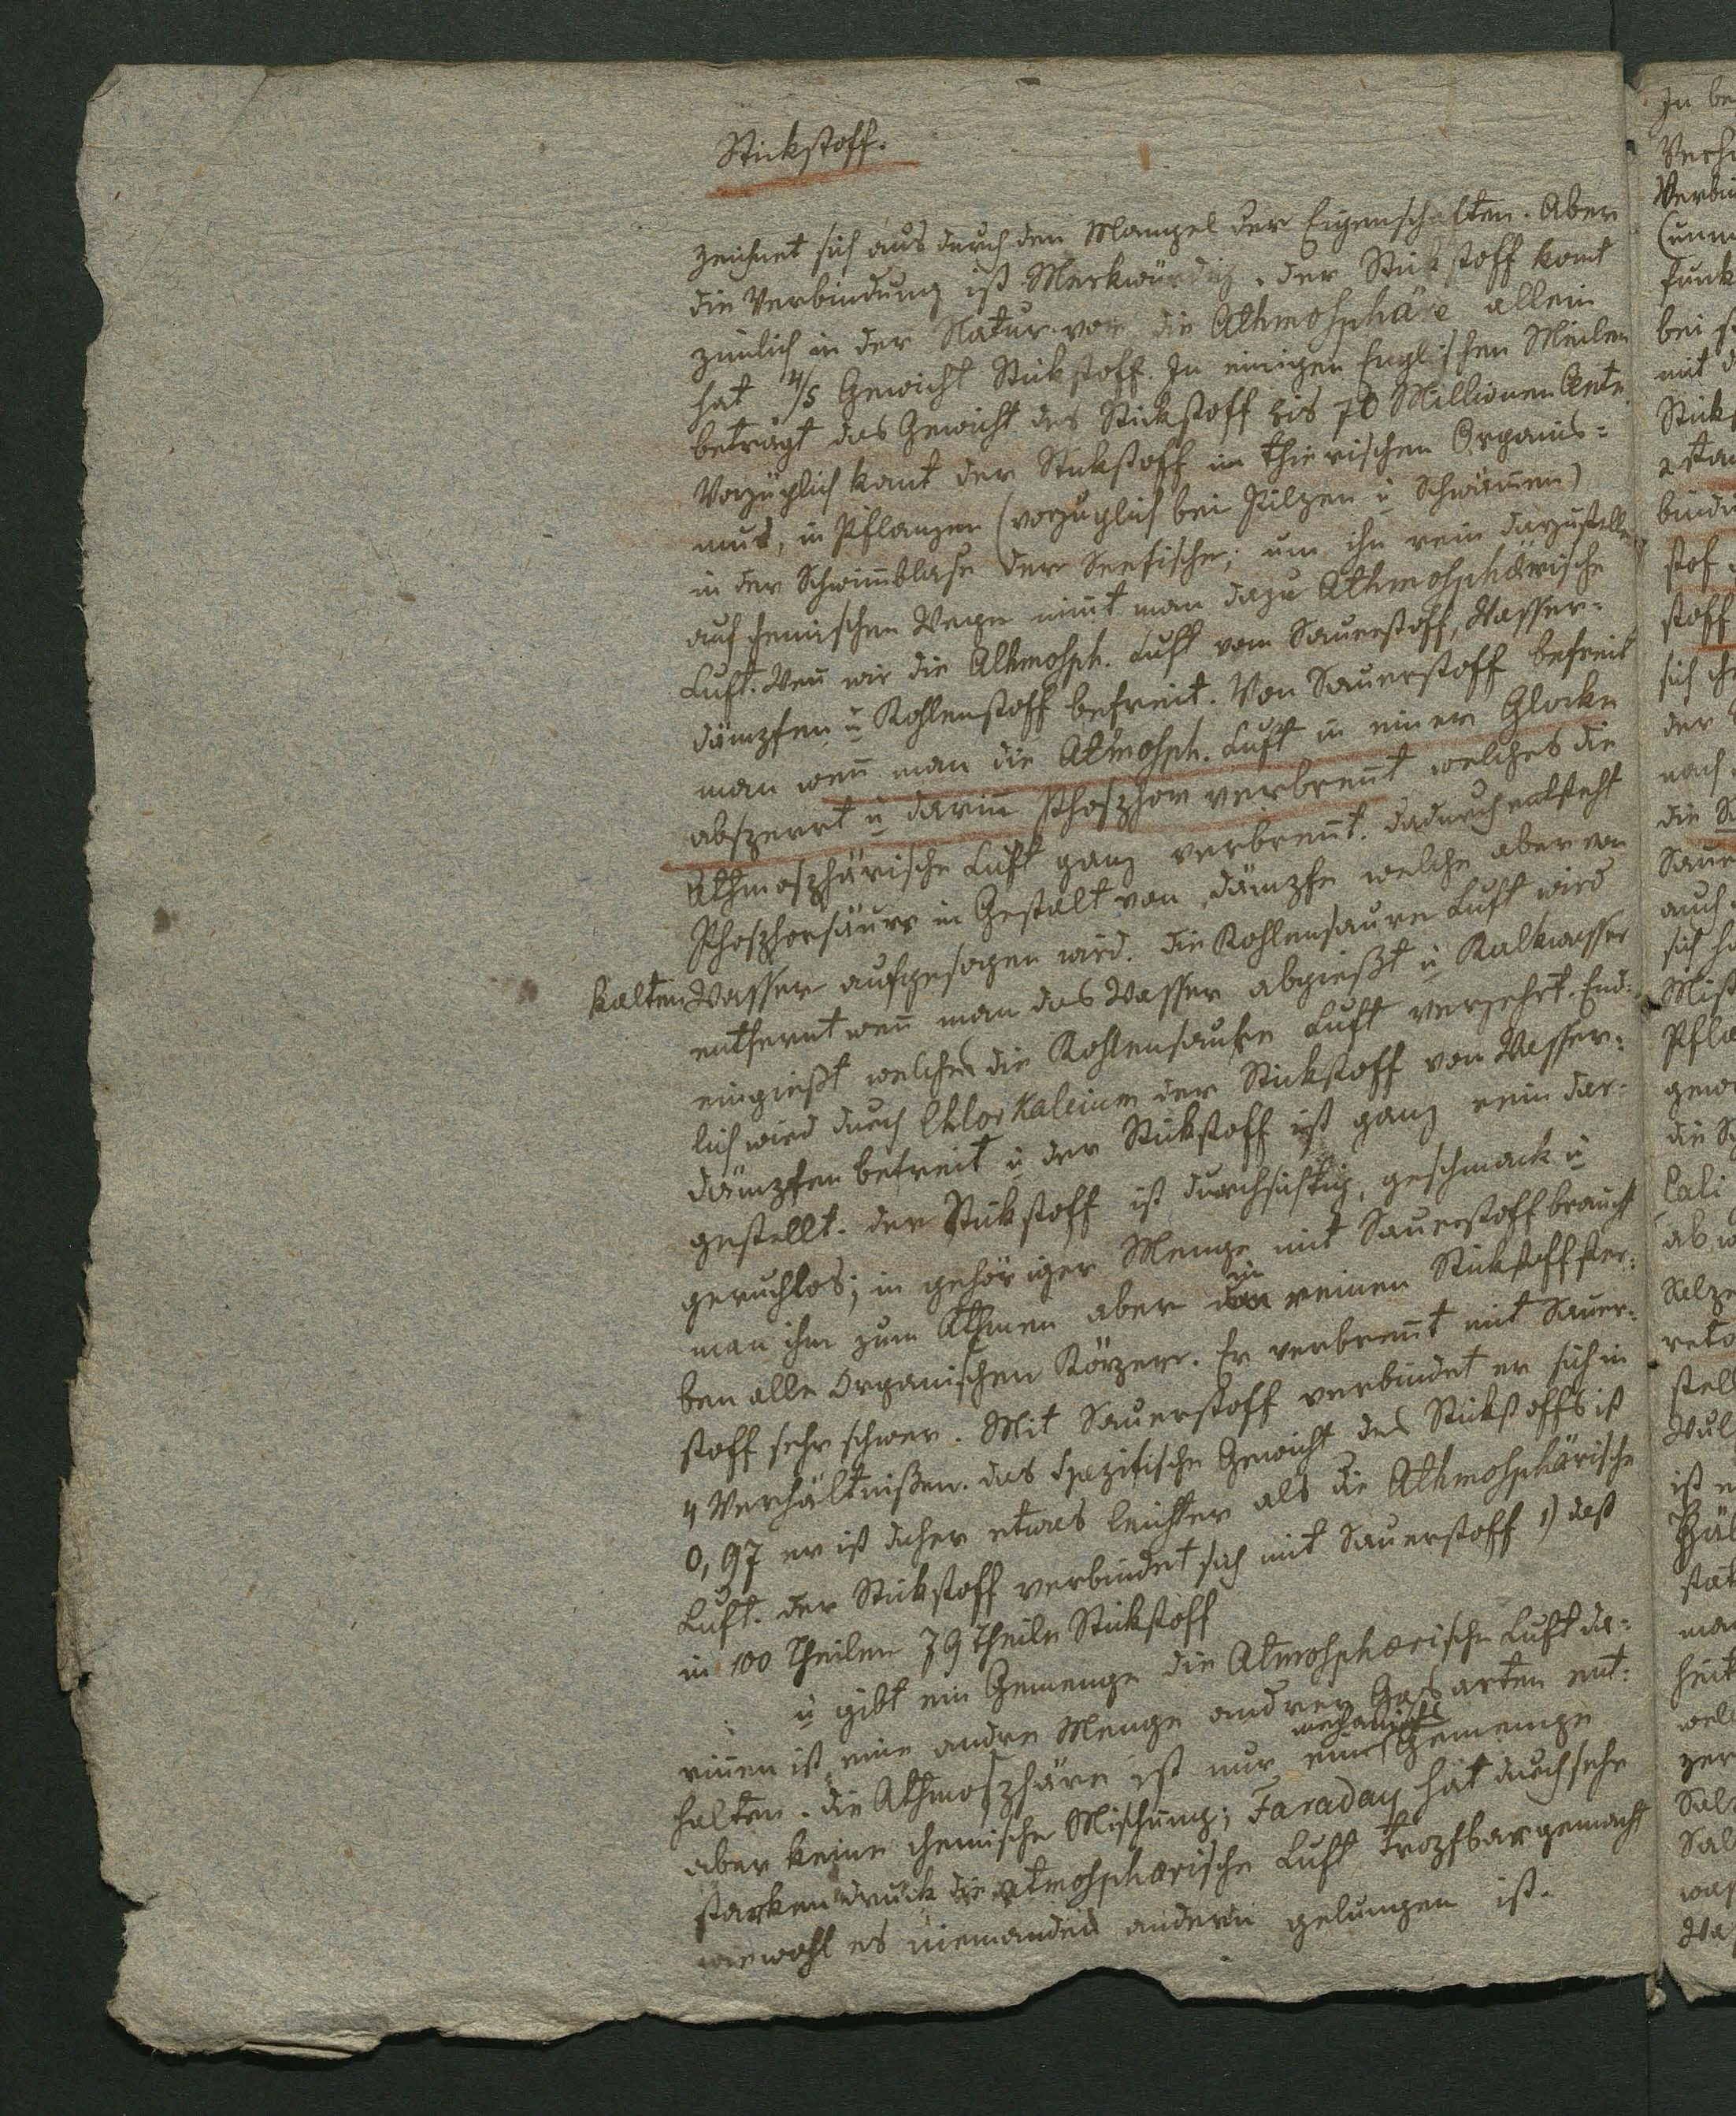 Stickstoff.
zeichnet sich aus durch den Mangel der Eigenschaften. Aber
die Verbindung ist Merkwürdig. der Stickstoff komt
zimlich in der Natur vor die Athmohsphäre allein
hat 4/5 Gewicht Stickstoff. In einigen Englischen Meilen
beträgt das Gewicht des Stickstoff bis 70 Millionen
Vorzüglich komt der Stickstoff im thierischen Organis=
mus, in Pflanzen (vorzüglich bei Pilzen u Schwämen)
in der Schwimblase der Seefische; um ihn rein darzustellen
auf chemischen Wege nimt man dazu Athmohsphärische
Luft. Wen wir die Athmohsph. Luft vom Sauerstoff, Wasser=
dämpfen u Kohlenstoff befreit. Von Sauerstoff befreit
man wen man die Atmohsph. Luft in einer Glocke
absperrt u darin Phosphor verbrent welches die
Athmosphärische Luft ganz verbrent. dadurch entsteht
Phosphorsäure in Gestalt von dämpfe welche aber von
kalten Wasser aufgesogen wird. die Kohlensaure Luft wird
entfernt wen man das Wasser abgießt u Kalkwasser
eingießt welches die Kohlensaure Luft verzehrt. End=
lich wird durch Chlorkalcium der Stickstoff von Wasser=
dämpfen befreit u der Stickstoff ist ganz rein dar=
gestellt. der Stickstoff ist durchsichtig, geschmack u
geruchlos; in gehöriger Menge mit Sauerstoff braucht
man ihn zum Athmen aber in reinen Stickstoff ster=
ben alle Organischen Körper. Er verbrent mit Sauer=
stoff sehr schwer. Mit Sauerstoff verbindet er sich in
4 Verhältnißen. das Spezifische Gewicht des Stickstoffs ist
0,97 er ist daher etwas leichter als die Athmohsphärische
Luft. der Stickstoff verbindet sich mit Sauerstoff 1) daß
in 100 Theilen 79 Theile Stickstoff
u gibt ein Gemenge die Atmohsphærische Luft da=
rinen ist eine andre Menge andrer Gasarten ent=
halten. die Athmosphäre ist nur ein mechanisches Gemenge
aber keine chemische Mischung; Faraday hat durch sehr
starken druck die atmohsphærische Luft tropfbar gemacht
wiewohl es niemanden andern gelungen ist.